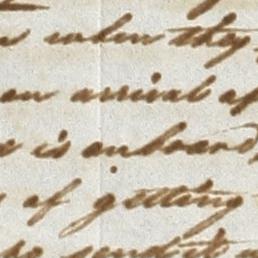 when they
an arrival of
is onboard
of getting
send it